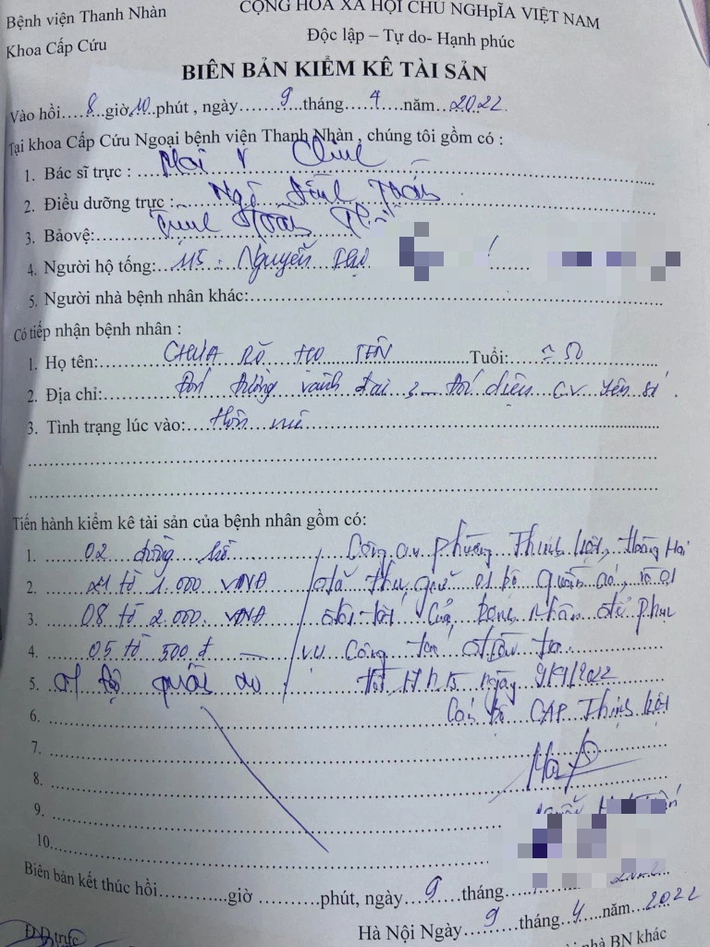 Bệnh viện Thanh Nhàn
CỘNG HOÀ XÃ HỘI CHỦ NGHĨA VIỆT NAM
Khoa Cấp Cứu
Độc lập – Tự do- Hạnh phúc
BIÊN BẢN KIỂM KÊ TÀI SẢN
Vào hồi....8....giờ10.phút , ngày......9......tháng....4....năm...2022.
Tại khoa Cấp Cứu Ngoại bệnh viện Thanh Nhàn , chúng tôi gồm có :
1. Bác sĩ trực : Mai V
2. Điều dưỡng trực : Ngô Đình
3. Bảo vệ:
4. Người hộ tống: 115 : Nguyễn
5. Người nhà bệnh nhân khác:
Có tiếp nhận bệnh nhân :
1. Họ tên: CHƯA RÕ HỌ TÊN Tuổi:
2. Địa chỉ: đường vành đai 3 – đối diện C.V. Yên Sở.
3. Tình trạng lúc vào: Hôn mê
Tiến hành kiểm kê tài sản của bệnh nhân gồm có:
1. 02 đồng hồ Công an phường Thịnh Liệt, Hoàng Mai
2. 21 tờ 1.000 VNĐ đã thu giữ 01 bộ quần áo, và 01
3. 08 tờ 2.000. VNĐ của bệnh nhân để phục
4. 05 tờ 500 đ vụ công tác điều tra.
5. 01 bộ quần áo ngày 9/4/2022
6. Cán bộ CAP Thịnh Liệt
7.
8.
9.
10.
Biên bản kết thúc hồi............giờ ............phút, ngày....9....tháng
Hà Nội Ngày....9....tháng..4....năm..2022
ĐD trực
nhà BN khác